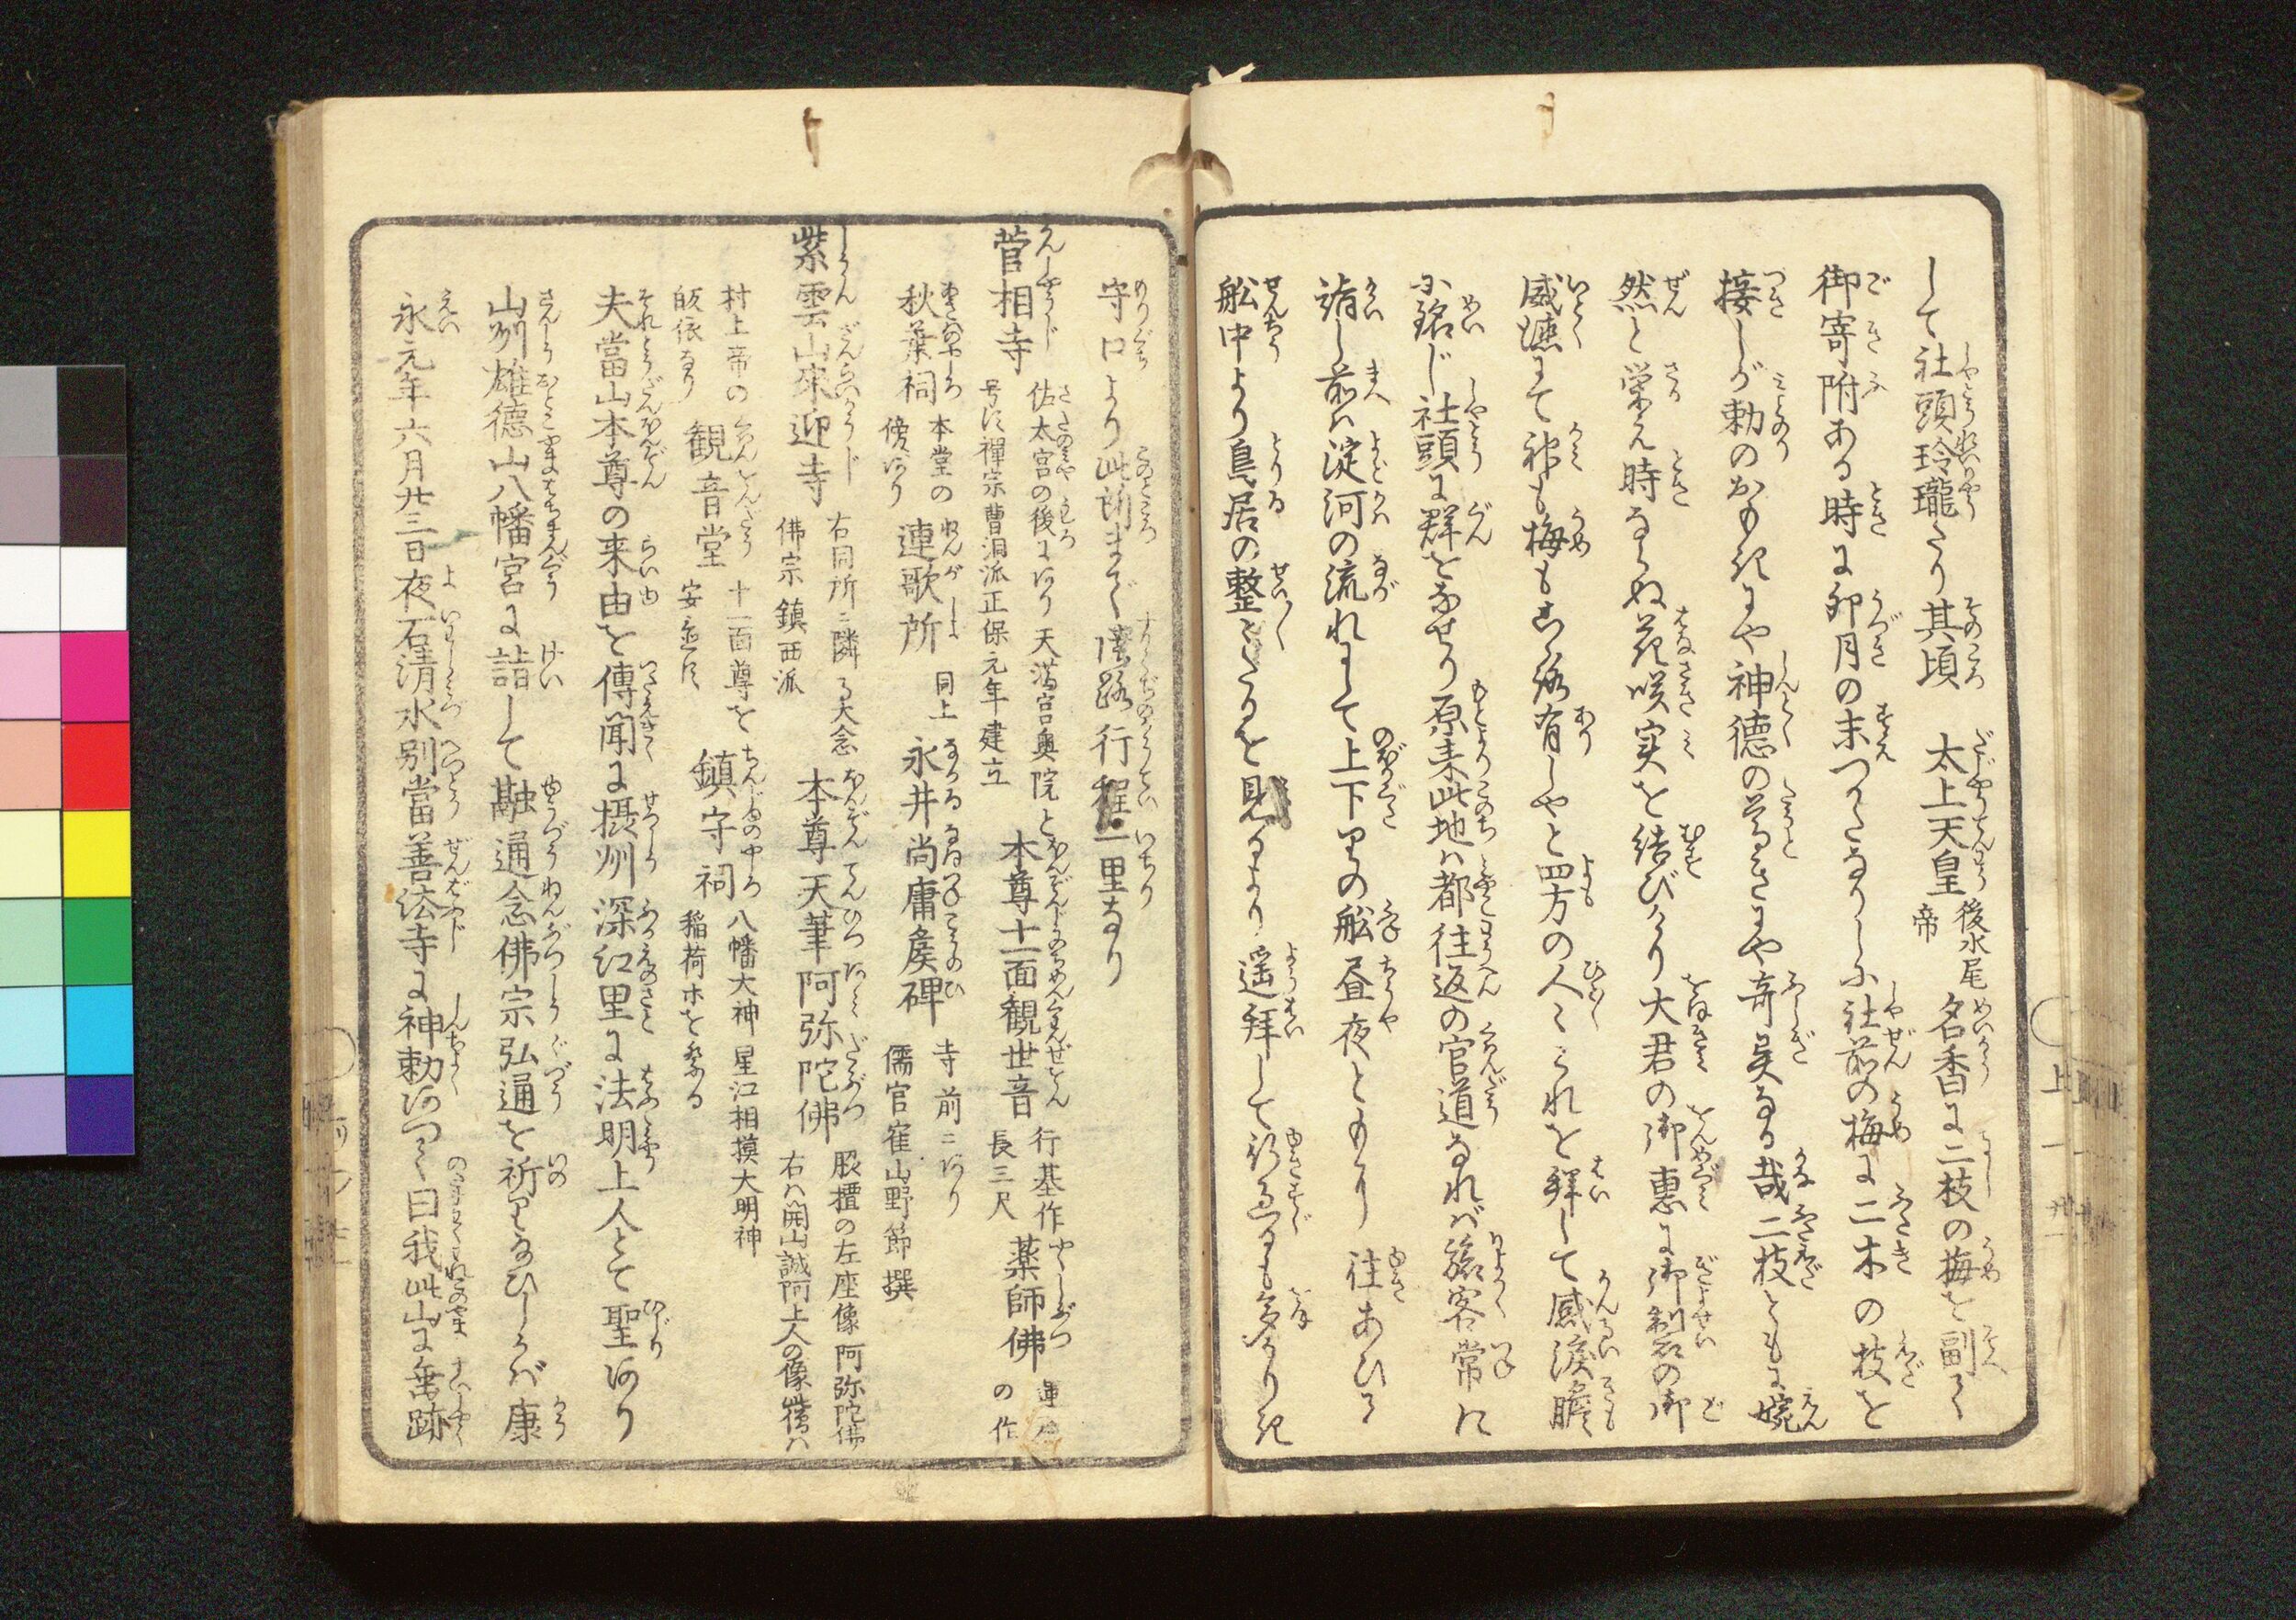 して社頭玲瓏たり其頃　太上天皇 後水尾帝 名香に二枝の梅を副て
御寄附ある時に卯月の末つかたなりしに社前の梅に二木の枝を
接しが勅のおもきにや神徳の尊きにや奇異なる哉二枝ともに婉
然と栄え時ならぬ花咲実を結びけり大君の御恵に御製の御
威漂にて神も梅もこゝろ有しやと四方の人々これを拝して感涙膽
に銘じ社頭に群をなせり原来此地は都往返の官道なれば旅客常に
詣し前は淀河の流れにして上下りの舩昼夜ともに往あひて
舩中より鳥居の整々たるを見るより遥拝して行過るも多かりき
守口より此所まで陸路行程一里なり
菅相寺 佐太宮の後にあり天満宮奥院と
号す禅宗曹洞派正保元年建立 本尊十一面観世音 行基作
長三尺 薬師佛 運慶
の作
秋葉祠 本堂の
傍にあり 連歌所 同上 永井尚庸侯碑 寺前ニあり
儒官寉山野節撰
紫雲山来迎寺 右同所ニ隣る大念
佛宗鎮西派 本尊天筆阿弥陀佛 股檀の左座像阿弥陀佛
右は開山誠阿上人の像
村上帝の
皈依なり 観音堂 十一面尊を
安置す 鎮守祠 八幡大神星江相摸大明神
稲荷ホを祭る
夫當山本尊の来由を傳聞に摂州深江里に法明上人とて聖あり
山州雄徳山八幡宮に詣して融通念佛宗弘通を祈り給ひしかば康
永元年六月廿三日夜石清水別當善法寺に神勅ありて曰我此山に垂跡